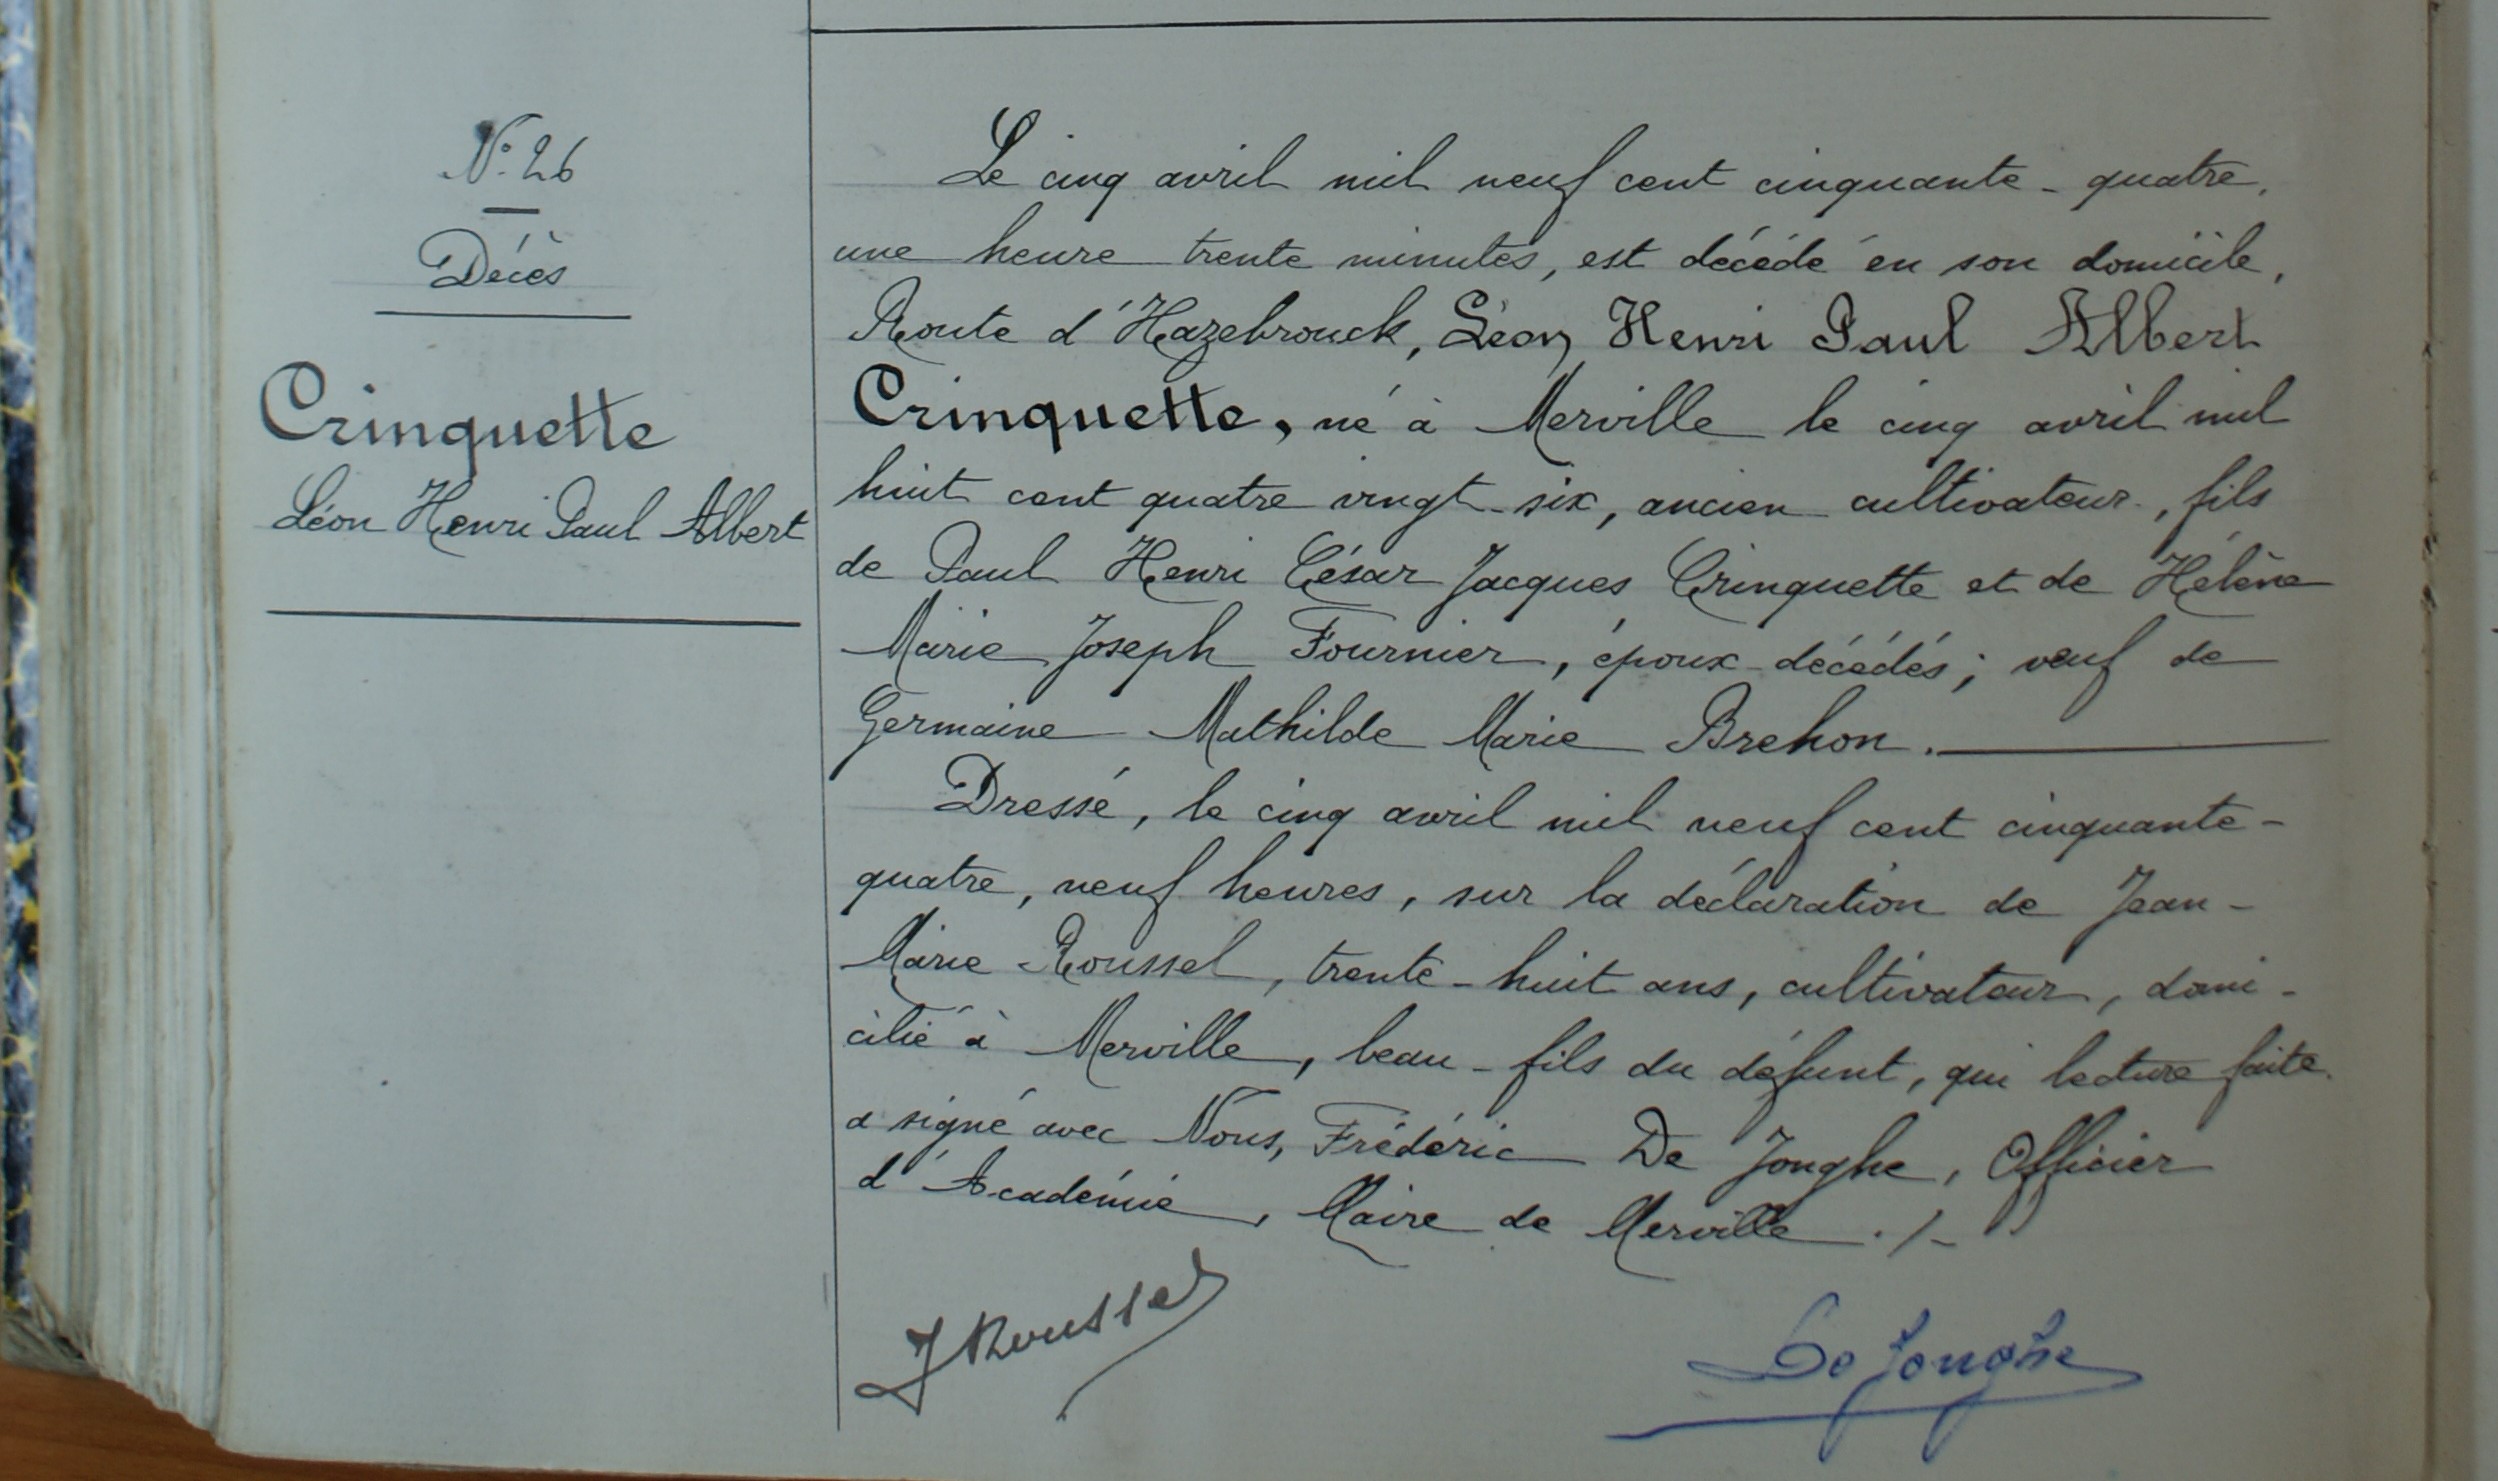 N° 26
Décès
Crinquette
Léon Henri Paul Albert
Le cinq avril mil neuf cent cinquante-quatre,
une heure trente minutes, est décédé en son domicile,
Route d'Hazebrouck, Léon Henri Paul Albert
Crinquette, né à Merville le cinq avril mil
huit cent quatre vingt-six, ancien cultivateur, fils
de Paul Henri César Jacques Crinquette et de Hélène
Marie Joseph Fournier, époux décédés; veuf de
Germaine Mathilde Marie Brehon.
Dressé, le cinq avril mil neuf cent cinquante-
quatre, neuf heures, sur la déclaration de Jean-
Marie Roussel, trente-huit ans, cultivateur, domi-
cilié à Merville, beau-fils du défunt, qui lecture faite
a signé avec Nous, Frédéric De Jonghe, Officier
d'Académie, Maire de Merville ./-
J Roussel
De Jonghe